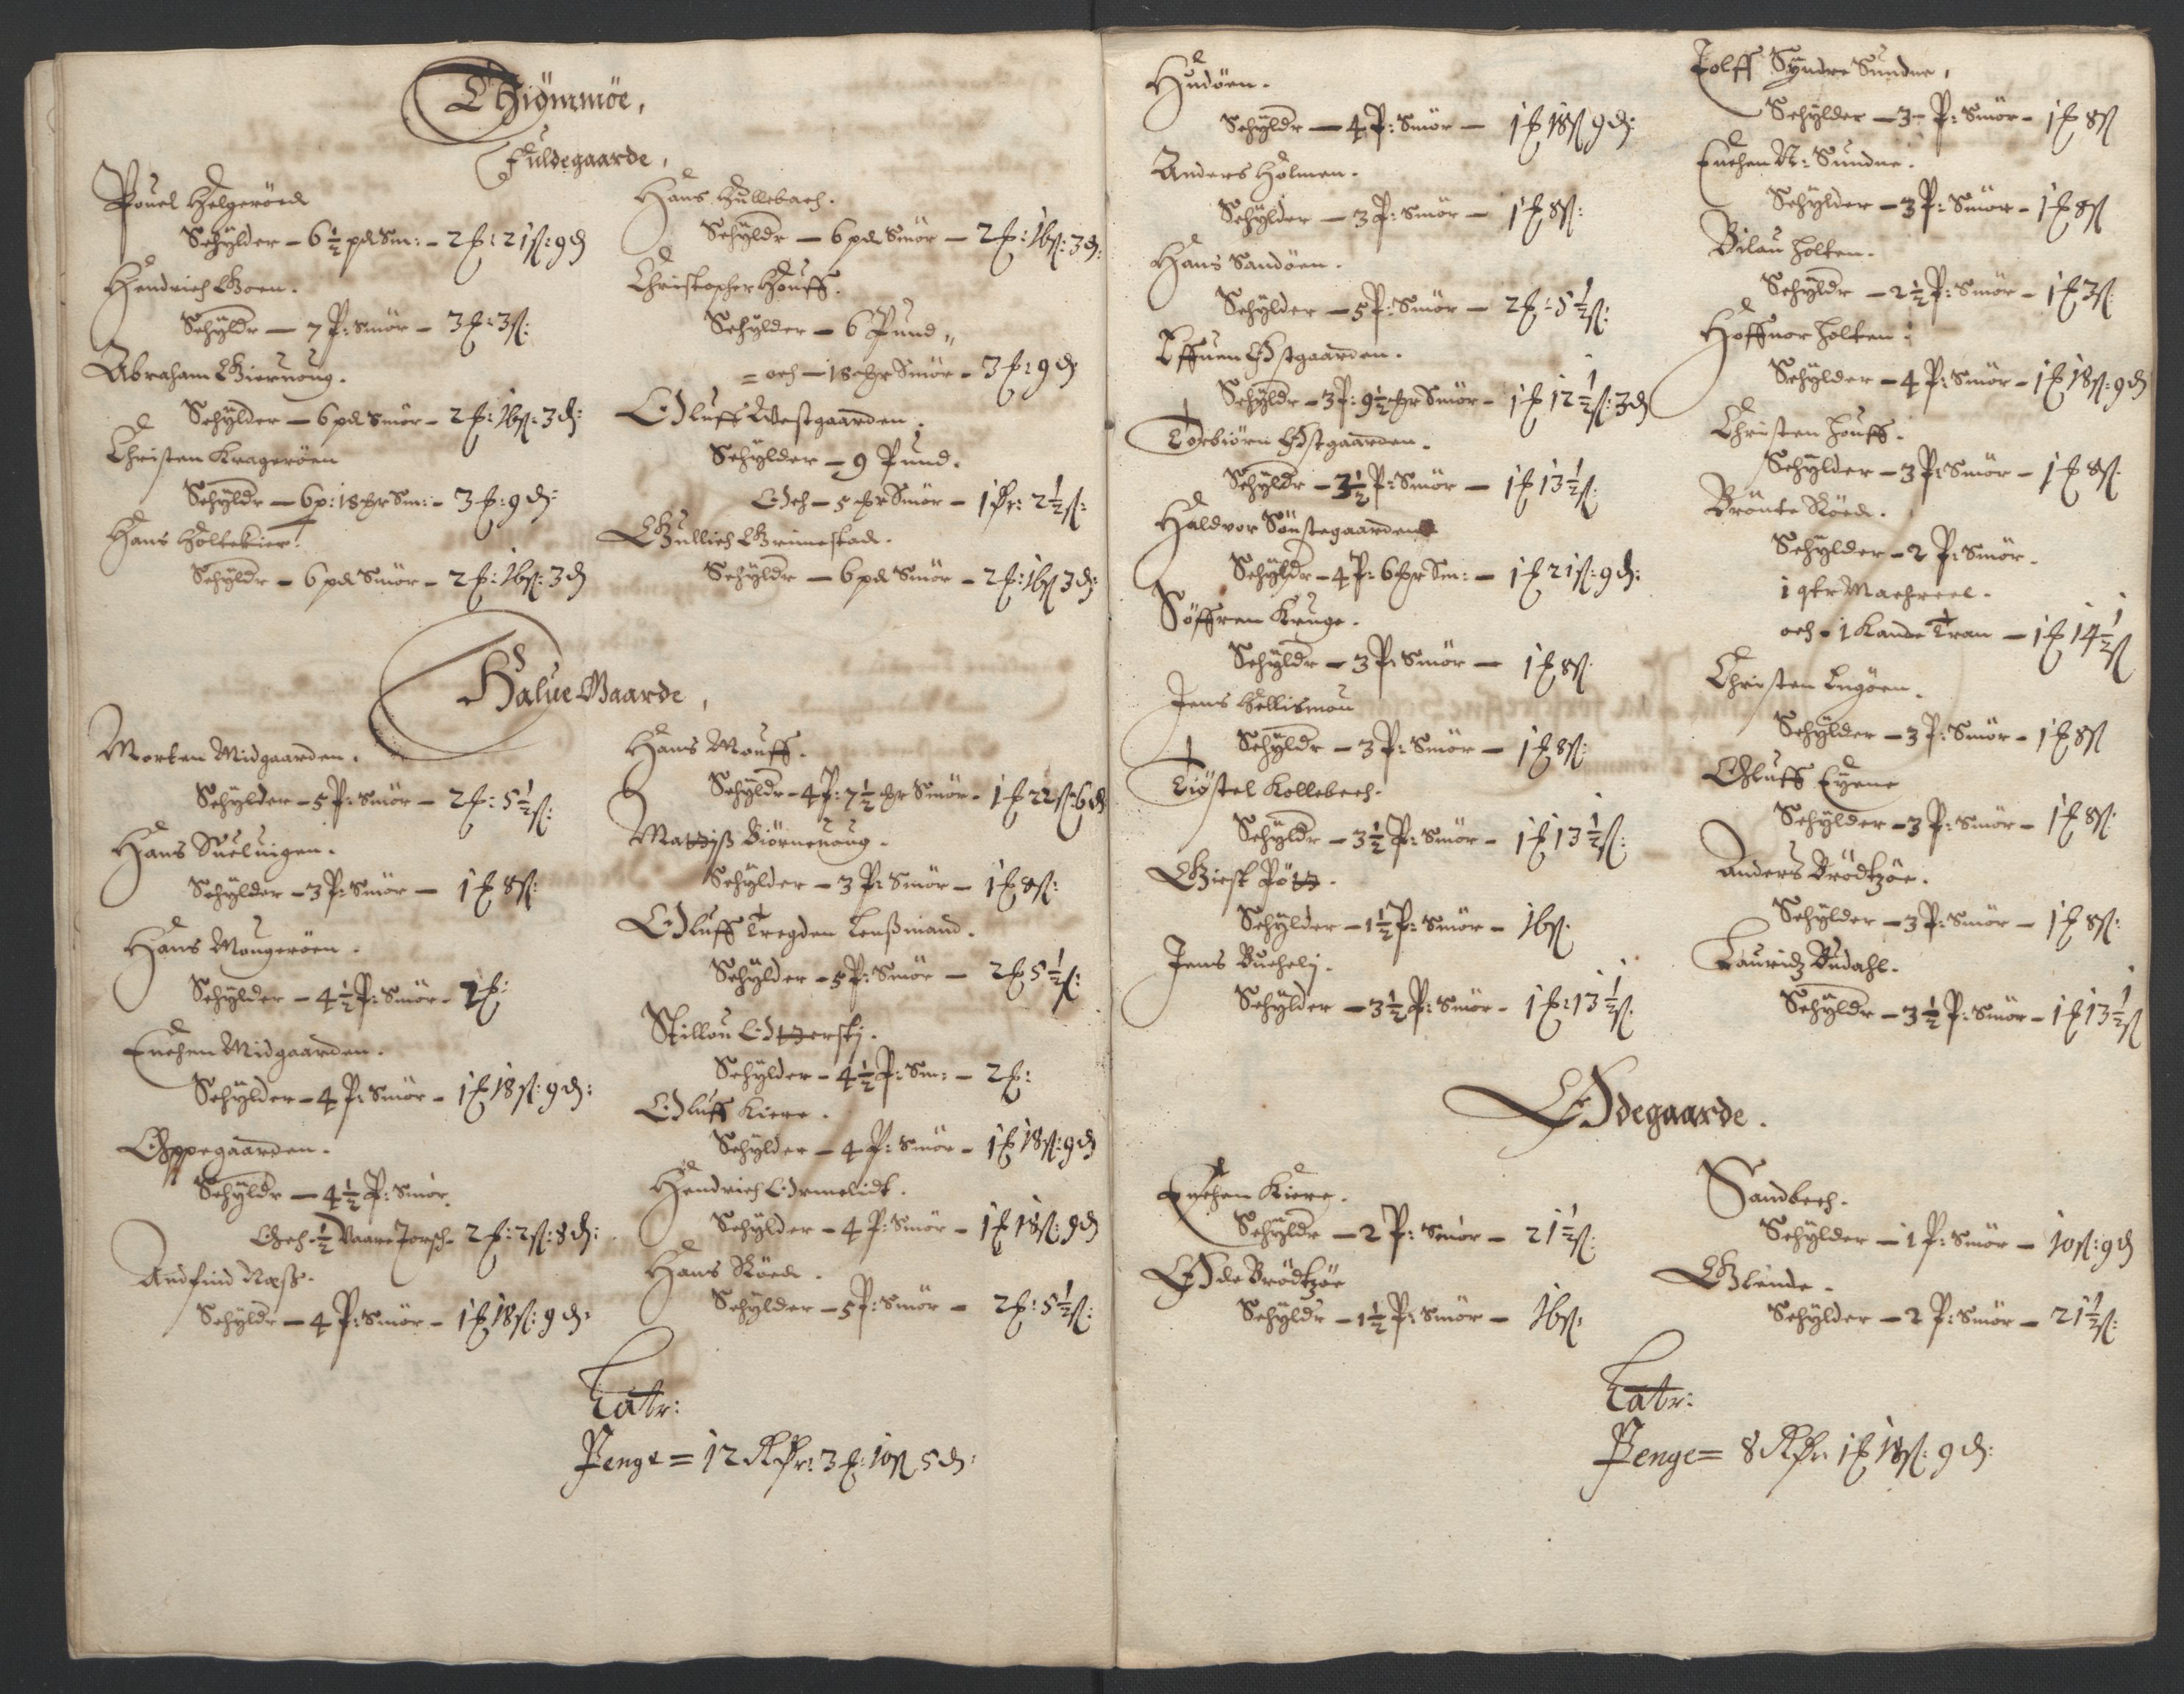 Thiømmøe,
Fuldegaarde,
Pouel Helgeröed
Schÿlder – 6½ pd Sm: – 2 ꝼ: 21 ß: 9 ₰
Hendrich Goen.
Schÿldr – 7 P: Smör – 3 ꝼ: 3 ß:
Abraham Giernoug.
Schÿlder – 6 pd Smör – 2 ꝼ: 16 ß: 3 ₰:
Christen Krageröen
Schÿldr – 6 p: 18 Sm: – 3 ꝼ: 9 ₰:
Hans Holtekier.
Schÿldr – 6 pd Smör – 2 ꝼ: 16 ß: 3 ₰
Hans Hüllebach.
Schÿldr – 6 pd Smör – 2 ꝼ: 16 ß: 3 ₰:
Christopher Houff.
Schÿlder – 6 Pund „
= och – 18 Smör – 3 ꝼ: 9 ₰
Oluff Westgaarden.
Schÿlder – 9 Pund.
Och – 5 Smör – 1 : 2½ ß:
Gullich Grimestad.
Schÿldr – 6 pd Smör – 2 ꝼ: 16 ß 3 ₰:
Halue Gaarde,
Morten Midgaarden.
Schÿlder – 5 P: Smör – 2 ꝼ: 5½ ß:
Hans Sueluigen.
Schÿlder – 3 P: Smör – 1 ꝼ 8 ß:
Hans Mongeröen.
Schÿlder – 4½ P: Smör – 2 ꝼ:
Euchen Midgaarden.
Schÿlder – 4 P: Smör – 1 ꝼ 18 ß: 9 ₰:
Oppegaarden.
Schÿldr – 4½ P: Smör
Och – ½ Vaare Torsch – 2 ꝼ: 2 ß: 8 ₰:
Andfind Næss.
Schÿldr – 4 P: Smör – 1 ꝼ 18 ß: 9 ₰:
Hans Mouff.
Schÿldr – 4 P: 7½ Smör – 1 ꝼ 22 ß 6 ₰
Mattÿß Biörnenoug.
Schÿlder – 3 P: Smör – 1 ꝼ 8 ß:
Oluff Tregden Lenßmand.
Schÿlder – 5 P: Smör – 2 ꝼ 5½ ß:
Stillou Otterstj.
Schÿlder – 4½ P: Sm: – 2 ꝼ:
Oluff Kiere.
Schÿlder – 4 P: Smör – 1 ꝼ 18 ß: 9 ₰
Hendrich Ormelidt.
Schÿlder – 4 P: Smör – 1 ꝼ 18 ß: 9 ₰
Hans Röed.
Schÿlder – 5 P: Smör – 2 ꝼ: 5½ ß:
Latr:
Penge = 12 R 3 ꝼ: 10 ß 5 ₰:
Hudöen.
Schÿldr – 4 P: Smör – 1 ꝼ 18 ß 9 ₰:
Anders Holmen.
Schÿlder – 3 P: Smör – 1 ꝼ 8 ß:
Hans Sandöen.
Schÿlder – 5 P: Smör – 2 ꝼ: 5½ ß:
Effuen Østgaarden.
Schÿldr – 3 P: 9½ Smör – 1 ꝼ 12½ ß: 3 ₰
Torbiörn Østgaarden.
Schÿldr – 3½ P: Smör – 1 ꝼ 13½ ß:
Haldvor Sönstegaarden
Schÿldr – 4 P: 6 Sm: – 1 ꝼ 21 ß: 9 ₰:
Söffren Kruge.
Schÿldr – 3 P: Smör – 1 ꝼ 8 ß:
Jens Hellismou
Schÿldr – 3 P: Smör – 1 ꝼ 8 ß:
Tiöstel Kollebech.
Schÿldr – 3½ P: Smör – 1 ꝼ 13½ ß:
Giest Pött.
Schÿlder – 1½ P: Smör – 16 ß.
Jens Buchelj.
Schÿlder – 3½ P: Smör – 1 ꝼ: 13½ ß.
Tolff Syndre Sundne,
Schÿlder – 3 P: Smör – 1 ꝼ 8 ß
Euchen N: Sundne.
Schÿlder – 3 P: Smör – 1 ꝼ 8 ß
Bilau Holten.
Schÿldr – 2½ P: Smör – 1 ꝼ 3 ß:
Hoffuor Holten.
Schÿlder – 4 P: Smör – 1 ꝼ 18 ß: 9 ₰
Christen Houff.
Schÿlder – 3 P: Smör – 1 ꝼ 8 ß:
Brönte Röed.
Schÿlder – 2 P: Smör.
1 qtr Machreel.
och – 1 Kande Tran – 1 ꝼ 14½ ß
Christen Engöen.
Schÿlder – 3 P: Smör – 1 ꝼ 8 ß
Oluff Eÿene
Schÿlder – 3 P: Smör – 1 ꝼ 8 ß:
Anders Brödtzöe.
Schÿlder – 3 P: Smör – 1 ꝼ 8 ß:
Lauridz Budahl.
Schÿldr – 3½ P: Smör – 1 ꝼ 13½ ß
Ødegaarde.
Euchen Kiere.
Schÿldr – 2 P: Smör – 21½ ß:
Øde Brödtzöe
Schÿldr – 1½ P: Smör – 16 ß:
Sandbech.
Schÿlder – 1 P: Smör – 10 ß: 9 ₰
Glende.
Schÿlder – 2 P: Smör – 21½ ß:
Latr:
Penge = 8 R 1 ꝼ 18 ß: 9 ₰: